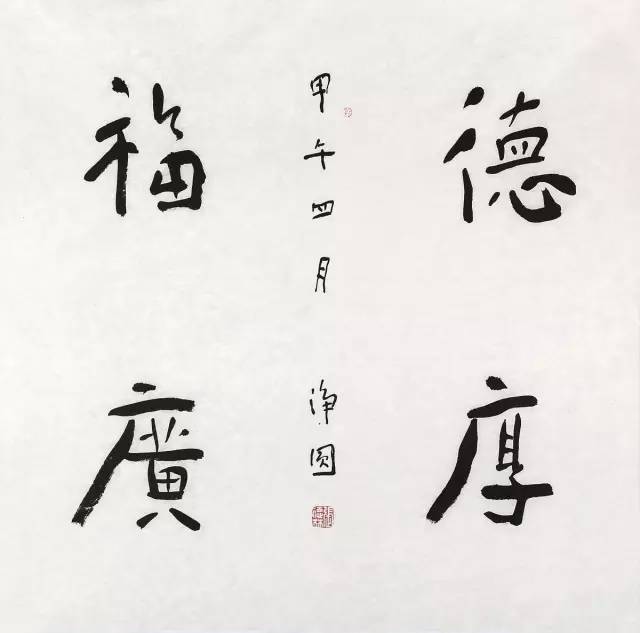 德厚
甲午四月 净圆
福廣